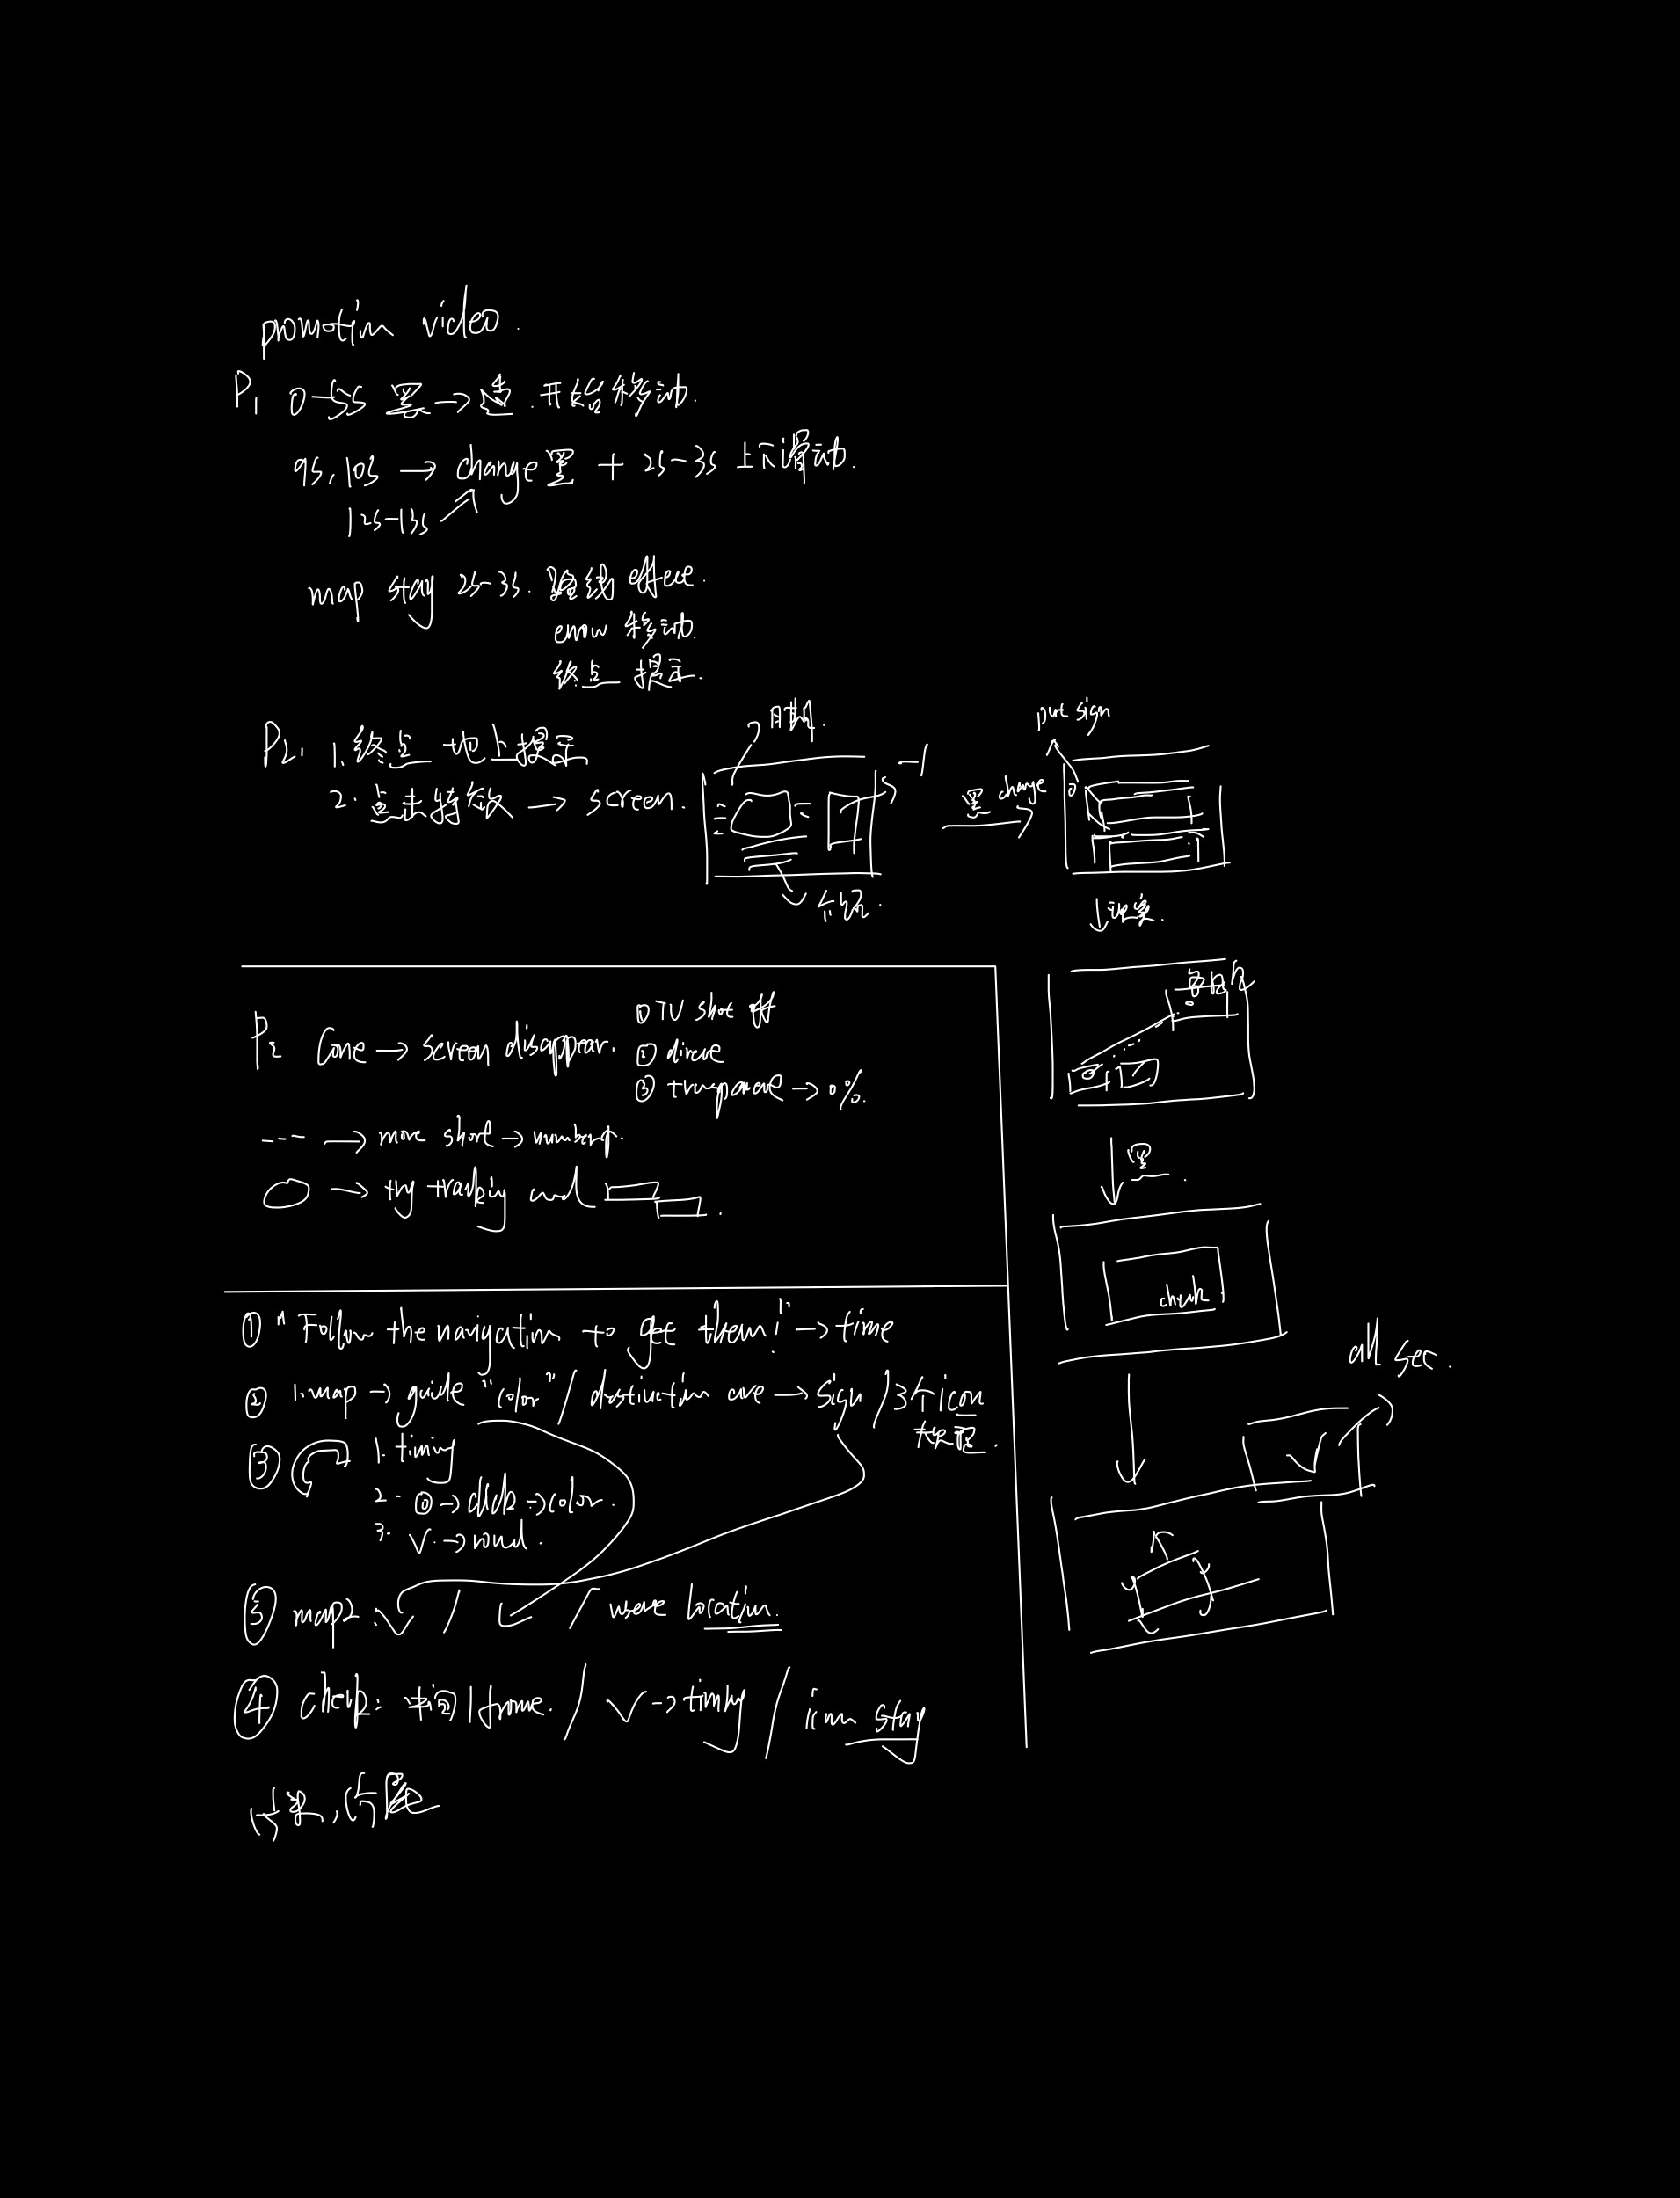 promotion video.
P1 0-5s 黑→透. 开始移动.
9s, 10s → change 黑 + 2s-3s 上下滑动.
12s-13s
map stay 2s-3s. 路线 effect.
移动.
终点 提示.
P2. 1. 终点 地上提示
2. 点击特效 → screen.
日期.
-1
介绍.
黑 change
put sign
↓
↓ 黑.
check
all sec.
P2 Cone → screen disappear.
① TV shot off
②
③ → 0%.
--- → more short → number↑.
→ try tracking and
① "Follow the navigation to get them!" → time
② 1. map → guide "color" / destination → sign / 3个icon
③ 1. timing
2. → click → color.
3. √. → round.
⑤ map2: √ / / location.
④ check: 中间 1 frame. / √ → timing / icon stay
片头, 片尾